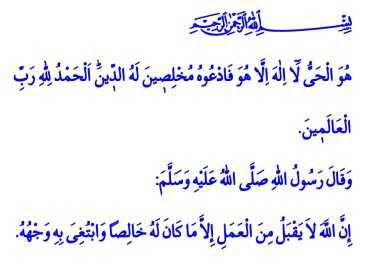 بِسْمِ اللهِ الرَّحْمٰنِ الرَّحِيمِ
هُوَ الْحَيُّ لَٓا اِلٰهَ اِلَّا هُوَ فَادْعُوهُ مُخْلِصٖينَ لَهُ الدّٖينَۜ اَلْحَمْدُ لِلّٰهِ رَبِّ
الْعَالَمٖينَ.
وَقَالَ رَسُولُ اللهِ صَلَّى اللهُ عَلَيْهِ وَسَلَّمَ:
إِنَّ اللَّهَ لاَ يَقْبَلُ مِنَ الْعَمَلِ إِلاَّ مَا كَانَ لَهُ خَالِصًا وَابْتُغِىَ بِهِ وَجْهُهُ.